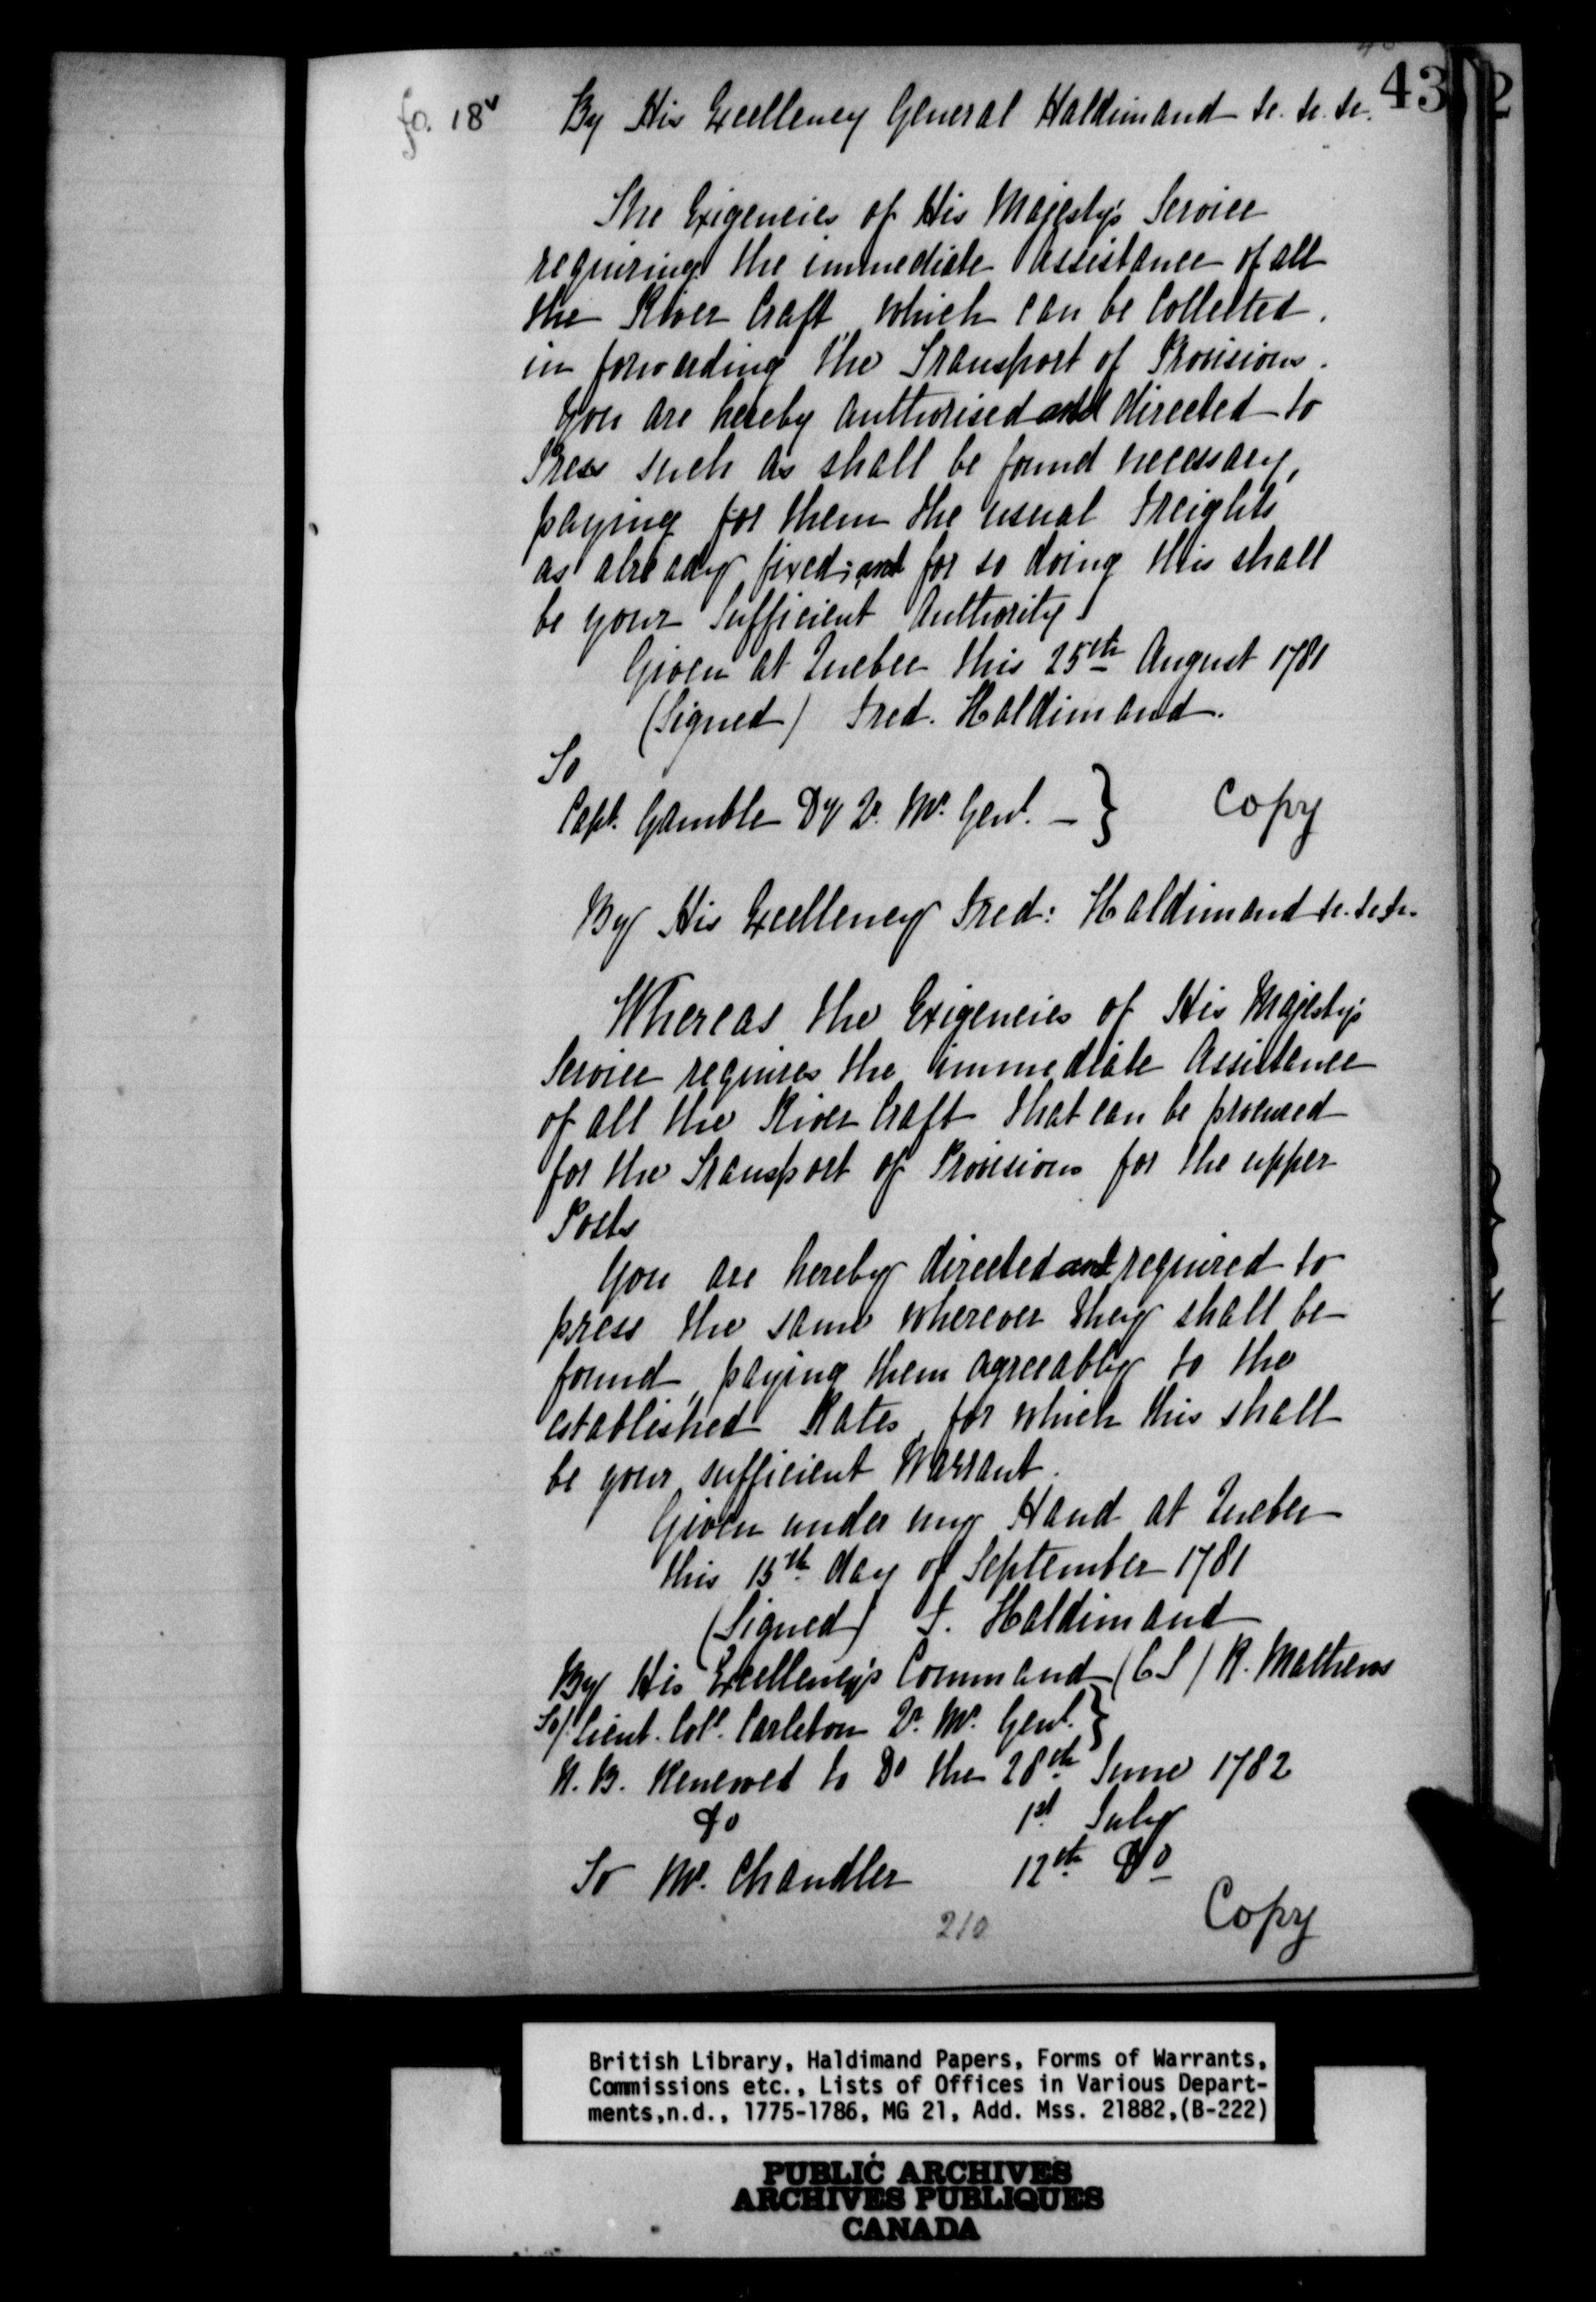 43
fo. 18v
By His Excellency General Haldimand &c. &c. &c.
The Exigencies of His Majesty's Service
requiring the immediate Assistance of all
the River Craft which can be Collected.
in forwarding the Transport of Provisions.
You are hereby authorised and directed to
Press such as shall be found necessary,
paying for them the usual Freights
as already fixed; and for so doing this shall
be your sufficient Authority
Given at Quebec this 25th August 1781
(Signed) Fred. Haldimand.
To
Capt. Gamble Dy Qr. Mr. Genl. — } Copy
By His Excellency Fred: Haldimand &c. &c. &c.
Whereas the Exigencies of His Majesty's
Service requires the immediate Assistance
of all the River Craft that can be procured
for the Transport of Provisions for the upper
Posts
You are hereby directed and required to
press the same wherever they shall be
found, paying them agreeably to the
established Rates, for which this shall
be your sufficient Warrant.
Given under my Hand at Quebec
this 15th day of September 1781
(Signed) F. Haldimand
By His Excellency's Command (C S) R. Mathews
To/ Lieut. Coll. Carleton Qr. Mr. Genl. }
N. B. Renewed to Do the 28th June 1782
Do 1st July
To Mr. Chandler 12th Do
210
Copy
British Library, Haldimand Papers, Forms of Warrants,
Commissions etc., Lists of Offices in Various Depart-
ments,n.d., 1775-1786, MG 21, Add. Mss. 21882,(B-222)
PUBLIC ARCHIVES
ARCHIVES PUBLIQUES
CANADA